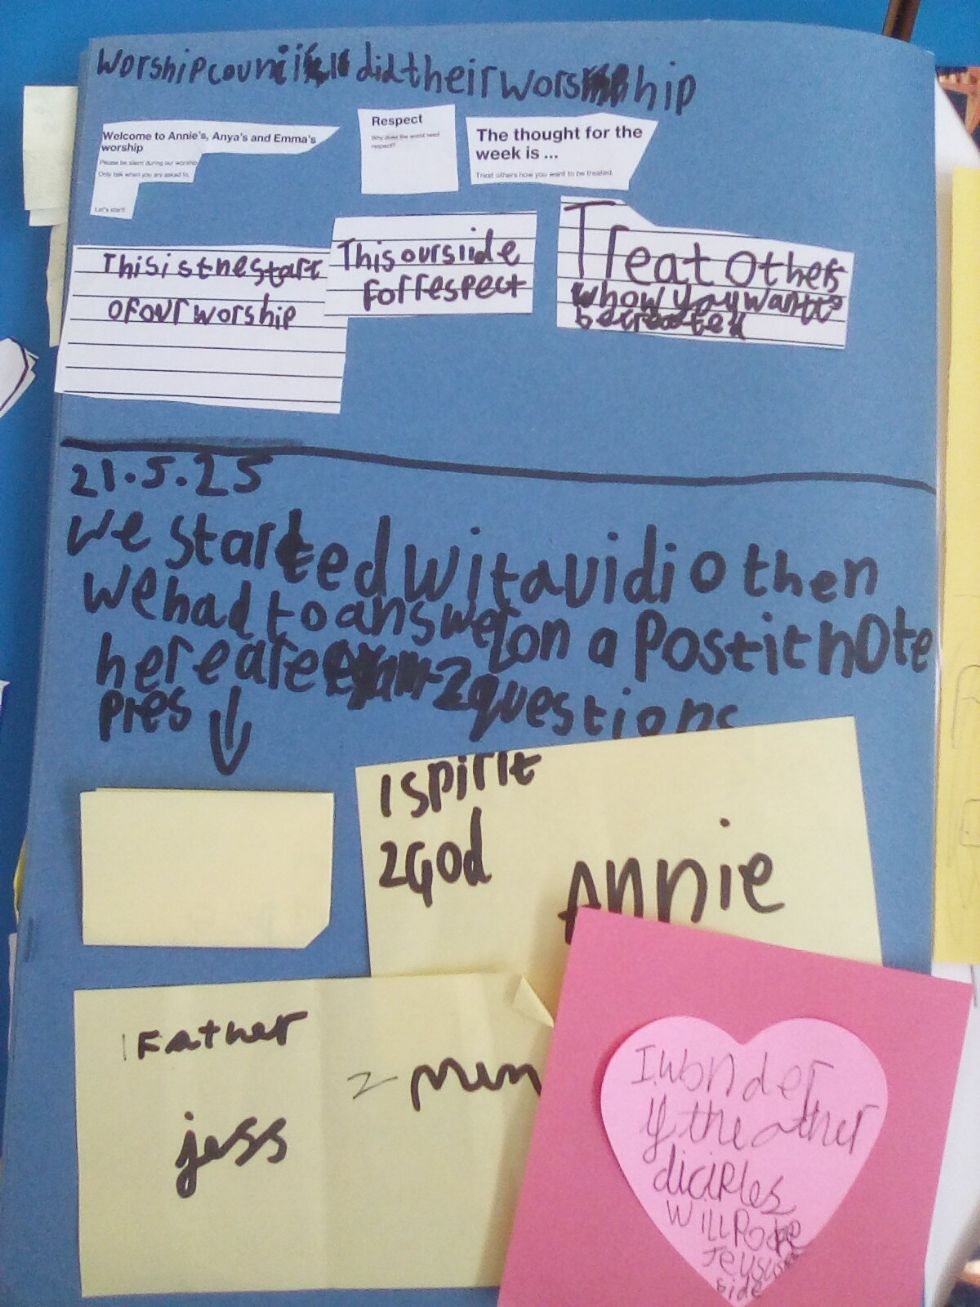 worship council did their worship
Welcome to Annie's, Anya's and Emma's
worship
Please be silent during our worship
Only talk when you are asked to.
Let's start!
Respect
Why does the world need
respect?
The thought for the
week is ...
Treat others how you want to be treated.
This is the start
of our worship
This our slide
for respect
Treat others
how you want to
be treated
21.5.25
we started wit a vidio then
we had to answer on a Postit note
here are 2 questions
pres ↓
1 spirit
2 God
Annie
1 Father
2 mum
jess
I wonder
if the other
diciples
will Poke
side